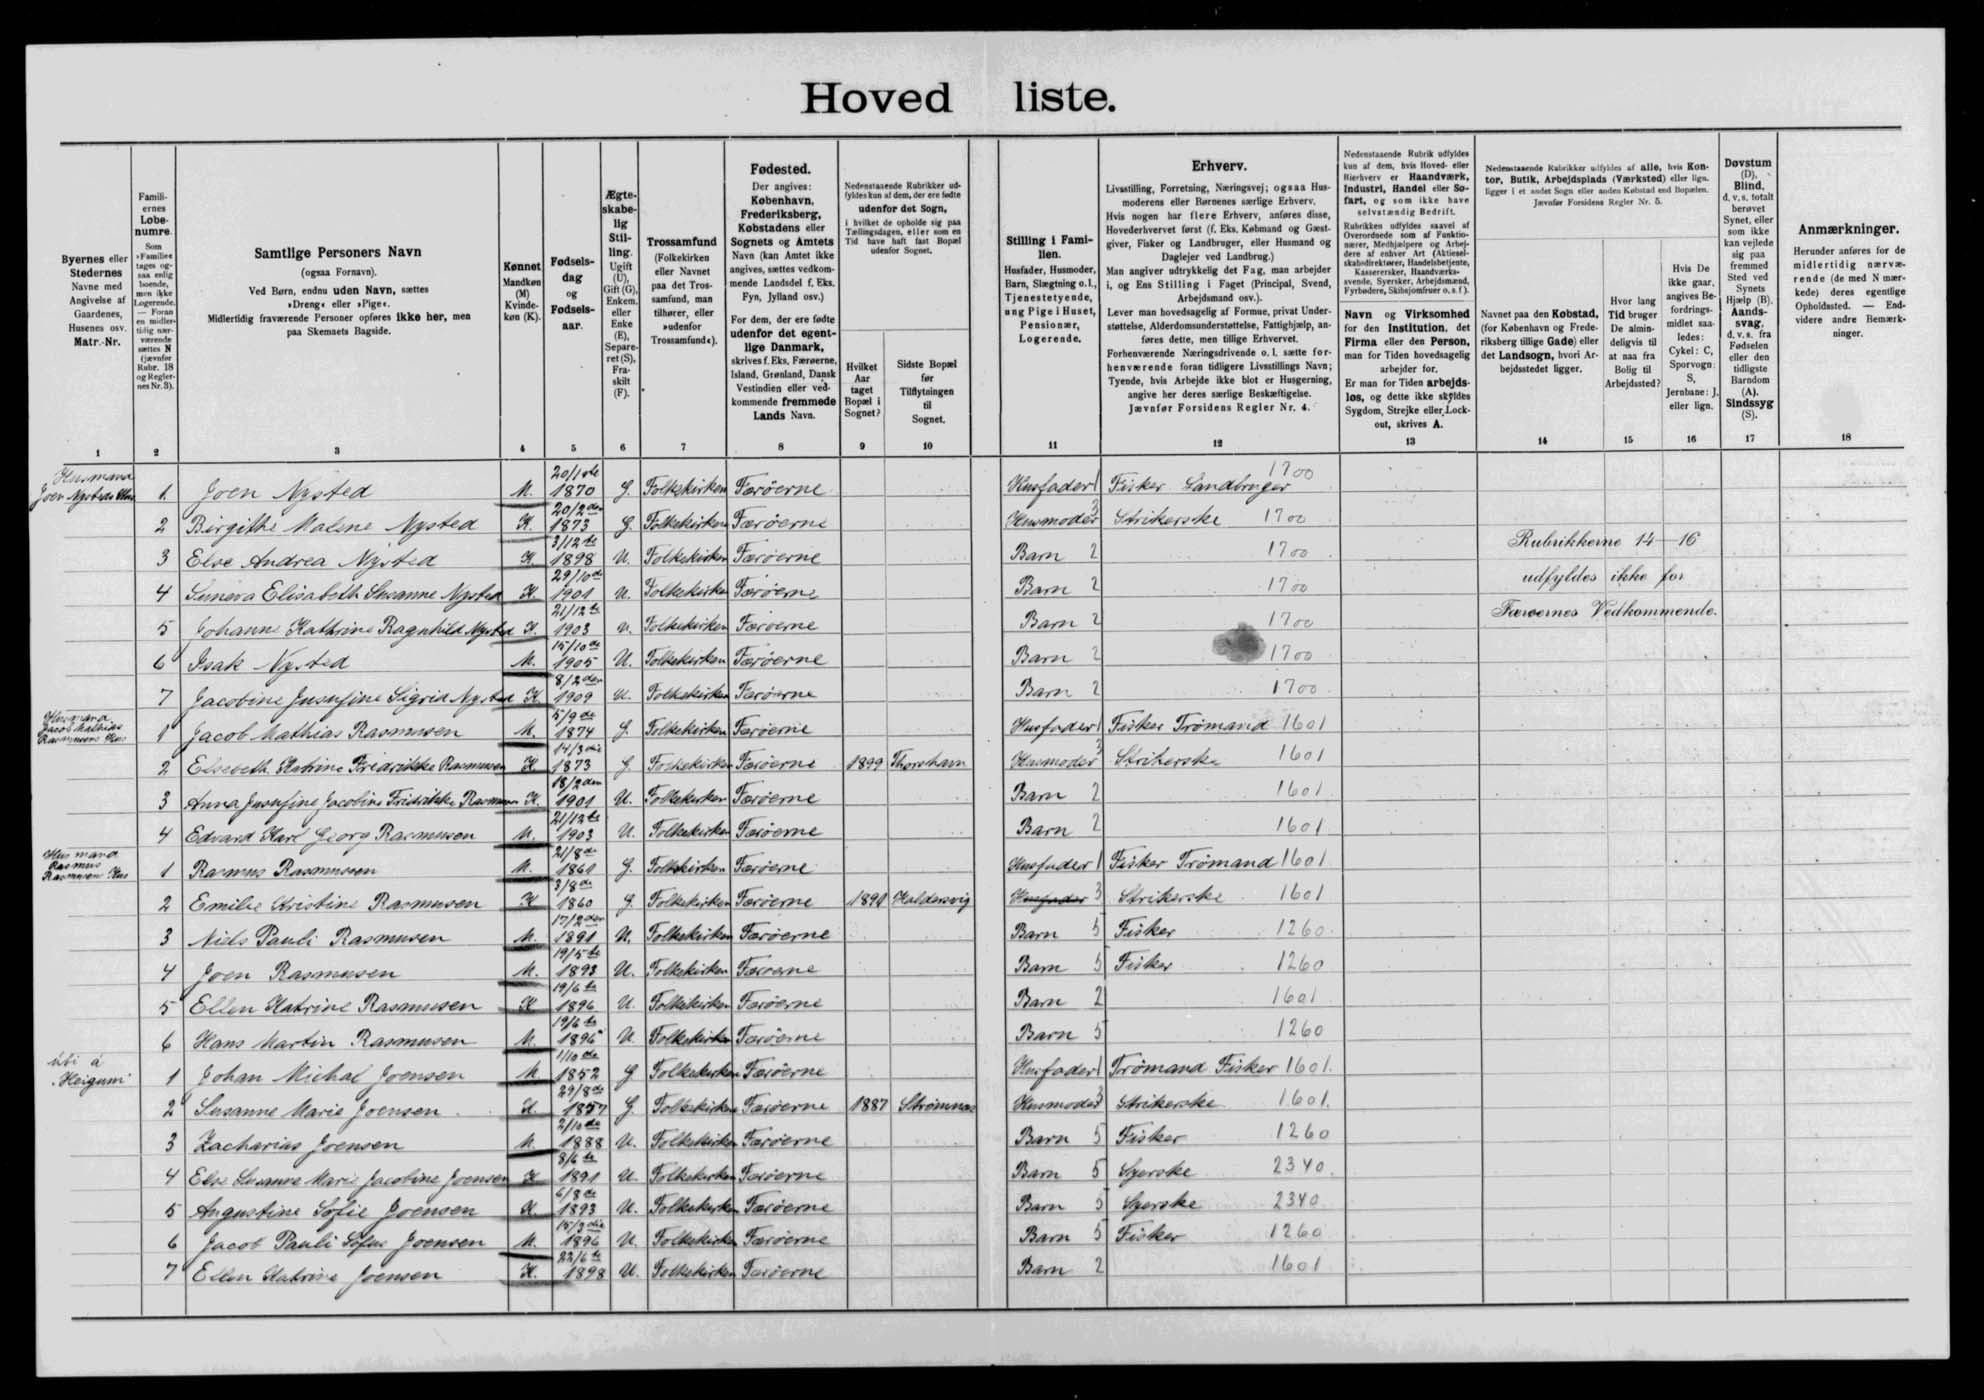 Hovedliste.
Byernes eller Stedernes Navne med Angivelse af Gaardenes, Husenes osv. Matr.-Nr.
Familiernes Løbenumre. Som »Familie« tages ogsaa enlig boende, men ikke Logerende. — Foran en midlertidig nærværende sættes N (jævnfør Rubr. 18 og Reglernes Nr. 3).
Samtlige Personers Navn (ogsaa Fornavn). Ved Børn, endnu uden Navn, sættes »Dreng« eller »Pige«. Midlertidig fraværende Personer opføres ikke her, men paa Skemaets Bagside.
Kønnet Mandkøn (M) Kvindekøn (K).
Fødselsdag og Fødselsaar.
Ægteskabelig Stilling. Ugift (U), Gift (G), Enkem. eller Enke (E), Separeret (S), Fraskilt (F).
Trossamfund (Folkekirken eller Navnet paa det Trossamfund, man tilhører, eller »udenfor Trossamfund«).
Fødested. Der angives: København, Frederiksberg, Købstadens eller Sognets og Amtets Navn (kan Amtet ikke angives, sættes vedkommende Landsdel f. Eks. Fyn, Jylland osv.) For dem, der ere fødte udenfor det egentlige Danmark, skrives f. Eks. Færøerne, Island, Grønland, Dansk Vestindien eller vedkommende fremmede Lands Navn.
Nedenstaaende Rubrikker udfyldes kun af dem, der ere fødte udenfor det Sogn, i hvilket de opholde sig paa Tællingsdagen, eller som en Tid have haft fast Bopæl udenfor Sognet.
Hvilket Aar taget Bopæl i Sognet?
Sidste Bopæl før Tilflytningen til Sognet.
Stilling i Familien. Husfader, Husmoder, Barn, Slægtning o.l., Tjenestetyende, ung Pige i Huset, Pensionær, Logerende.
Erhverv. Livsstilling, Forretning, Næringsvej; ogsaa Husmoderens eller Børnenes særlige Erhverv. Hvis nogen har flere Erhverv, anføres disse, Hovederhvervet først (f. Eks. Købmand og Gæstgiver, Fisker og Landbruger, eller Husmand og Daglejer ved Landbrug.) Man angiver udtrykkelig det Fag, man arbejder i, og Ens Stilling i Faget (Principal, Svend, Arbejdsmand osv.). Lever man hovedsagelig af Formue, privat Understøttelse, Alderdomsunderstøttelse, Fattighjælp, anføres dette, men tillige Erhvervet. Forhenværende Næringsdrivende o. l. sætte forhenværende foran tidligere Livsstillings Navn; Tyende, hvis Arbejde ikke blot er Husgerning, angive her deres særlige Beskæftigelse. Jævnfør Forsidens Regler Nr. 4.
Nedenstaaende Rubrik udfyldes kun af dem, hvis Hoved- eller Bierhverv er Haandværk, Industri, Handel eller Søfart, og som ikke have selvstændig Bedrift. Rubrikken udfyldes saavel af Overordnede som af Funktionærer, Medhjælpere og Arbejdere af enhver Art (Aktieselskabsdirektører, Handelsbetjente, Kasserersker, Haandværkssvende, Syersker, Arbejdsmænd, Fyrbødere, Skibsjomfruer o. s. f.).
Navn og Virksomhed for den Institution, det Firma eller den Person, man for Tiden hovedsagelig arbejder for. Er man for Tiden arbejdsløs, og dette ikke skyldes Sygdom, Strejke eller Lockout, skrives A.
Nedenstaaende Rubrikker udfyldes af alle, hvis Kontor, Butik, Arbejdsplads (Værksted) eller lign. ligger i et andet Sogn eller anden Købstad end Bopælen. Jævnfør Forsidens Regler Nr. 5.
Navnet paa den Købstad, (for København og Frederiksberg tillige Gade) eller det Landsogn, hvori Arbejdsstedet ligger.
Hvor lang Tid bruger De almindeligvis til at naa fra Bolig til Arbejdssted?
Hvis De ikke gaar, angives Befordringsmidlet saaledes: Cykel: C, Sporvogn: S, Jernbane: J, eller lign.
Døvstum (D), Blind, d. v. s. totalt berøvet Synet, eller som ikke kan vejlede sig paa fremmed Sted ved Synets Hjælp (B). Aandssvag, d. v. s. fra Fødselen eller den tidligste Barndom (A). Sindssyg (S).
Anmærkninger. Herunder anføres for de midlertidig nærværende (de med N mærkede) deres egentlige Opholdssted. — Endvidere andre Bemærkninger.
1 2 3 4 5 6 7 8 9 10 11 12 13 14 15 16 17 18
Husmand Joen Nysteds Hus 1 Joen Nysted M. 20/1 de 1870 G. Folkekirken Færøerne Husfader 1 Fisker Landbruger 1700
2 Birgithe Malene Nysted K. 20/2 den 1873 G. Folkekirken Færøerne Husmoder 3 Strikerske 1700
3 Else Andrea Nysted K. 3/12 te 1898 U. Folkekirken Færøerne Barn 2 1700 Rubrikkerne 14-16
4 Suneva Elisabeth Susanne Nysted K. 29/10 de 1901 U. Folkekirken Færøerne Barn 2 1700 udfyldes ikke for
5 Johanne Kathrine Ragnhild Nysted K. 21/12 te 1903 U. Folkekirken Færøerne Barn 2 1700 Færøernes Vedkommende.
6 Isak Nysted M. 15/10 de 1905 U. Folkekirken Færøerne Barn 2 1700
7 Jacobine Jusufine Sigrid Nysted K. 8/2 den 1909 U. Folkekirken Færøerne Barn 2 1700
Husmand Jacob Mathias Rasmusens Hus 1 Jacob Mathias Rasmusen M. 5/9 de 1874 G. Folkekirken Færøerne Husfader 1 Fisker Trømand 1601
2 Elsebeth Katrine Fredrikke Rasmusen K. 14/3 die 1873 G. Folkekirken Færøerne 1899 Thorshavn Husmoder 3 Strikerske 1601
3 Anna Jusufine Jacobine Fridrikke Rasmusen K. 18/2 den 1901 U. Folkekirken Færøerne Barn 2 1601
4 Edvard Karl Georg Rasmusen M. 21/12 te 1903 U. Folkekirken Færøerne Barn 2 1601
Husmand Rasmus Rasmusens Hus 1 Rasmus Rasmusen M. 21/8 de 1861 G. Folkekirken Færøerne Husfader 1 Fisker Trømand 1601
2 Emilie Kristine Rasmusen K 3/8 de 1860 G. Folkekirken Færøerne 1890 Haldersvig Husfader 3 Strikerske 1601
3 Niels Pauli Rasmusen M. 17/2 den 1891 U. Folkekirken Færøerne Barn 5 Fisker 1260
4 Joen Rasmusen M. 19/5 te 1893 U. Folkekirken Færøerne Barn 5 Fisker 1260
5 Ellen Katrine Rasmusen K 19/6 te 1896 U. Folkekirken Færøerne Barn 2 1601
6 Hans Martin Rasmusen M. 19/6 te 1896 U. Folkekirken Færøerne Barn 5 1260
úti á "Heigum" 1 Johan Michal Joensen M 1/10 de 1852 G Folkekirken Færøerne Husfader 1 Trømand Fisker 1601.
2 Susanne Marie Joensen K. 29/8 de 1857 G. Folkekirken Færøerne 1887 Strømnæs Husmoder 3 Strikerske 1601.
3 Zacharias Joensen M. 2/10 de 1888 U. Folkekirken Færøerne Barn 5 Fisker 1260
4 Else Susanne Marie Jacobine Joensen K 8/6 te 1891 U. Folkekirken Færøerne Barn 5 Syerske 2340.
5 Augustine Sofie Joensen K. 6/8 de 1893 U. Folkekirken Færøerne Barn 5 Syerske 2340
6 Jacob Pauli Sofus Joensen M. 15/3 die 1896 U. Folkekirken Færøerne Barn 5 Fisker 1260
7 Ellen Katrine Joensen K. 22/6 te 1898 U. Folkekirken Færøerne Barn 2 1601